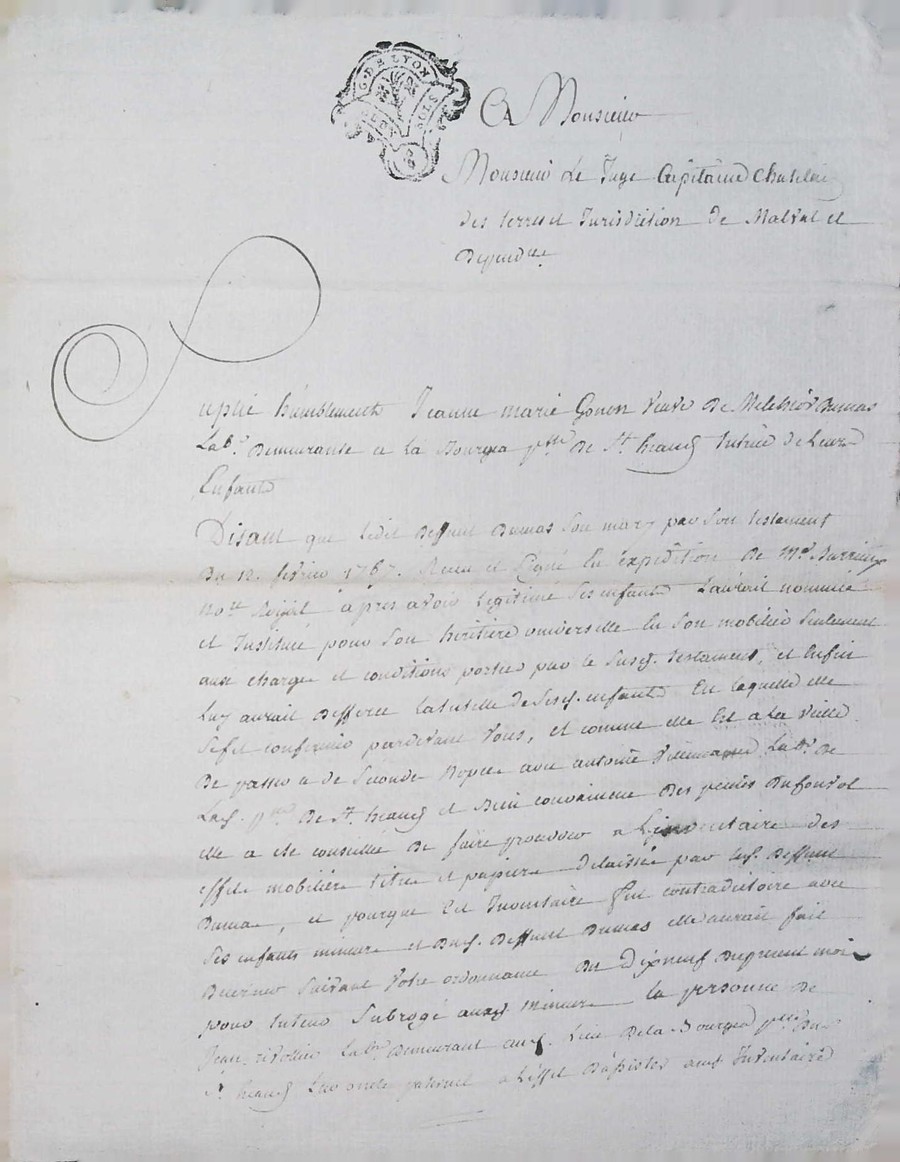 G. DE LYON
A Monsieur
Monsieur Le Juge Capitaine Chatelain
des terres et Jurisdiction de Malval et
Dependces
Suplie humblement Jeanne marie Gonon veuve de Melchior Dumas
Labr. Demeurante a La Bourgea psse De St. heand tutrice de Leurs
Enfants
Disant que ledit Deffunt Dumas Son mary par Son testament
du 12. fevrier 1767. Recu et Signé En expedition De Me.
nore Royal apres avoir Legitimé Ses enfants L'auroit nommée
et Instituée pour Son heritiere universelle En Son mobilier Seulement
aux charges et conditions portees par le Susd. testament, et Enfin
Luy aurait Defferée La tutelle de Sesd. enfants En laquelle elle
Se fit confirmer pardevant Vous, et comme elle Est a La veille
De passer a de Secondes Nopces avec antoine Labr. De
Lad. psse De St. heand et Bien convaincue Des peines
elle a eté conseillée De faire proceder a L'inventaire des
effets mobiliers titres et papiers delaissés par led. Deffunt
Dumas, et pourque Cet Inventaire fut contradictoire avec
Ses enfants mineurs et Dud. Deffunt Dumas elle aurait fait
Decerner Suivant Votre ordonnance Du Dixneuf Du present mois
pour tuteur Subrogé auxd mineurs la personne De
Jean Labr Demeurant aud. Lieu De la Bourgea psse Dud
St. heand Leur oncle paternel a L'effet D'assister aud Inventaire